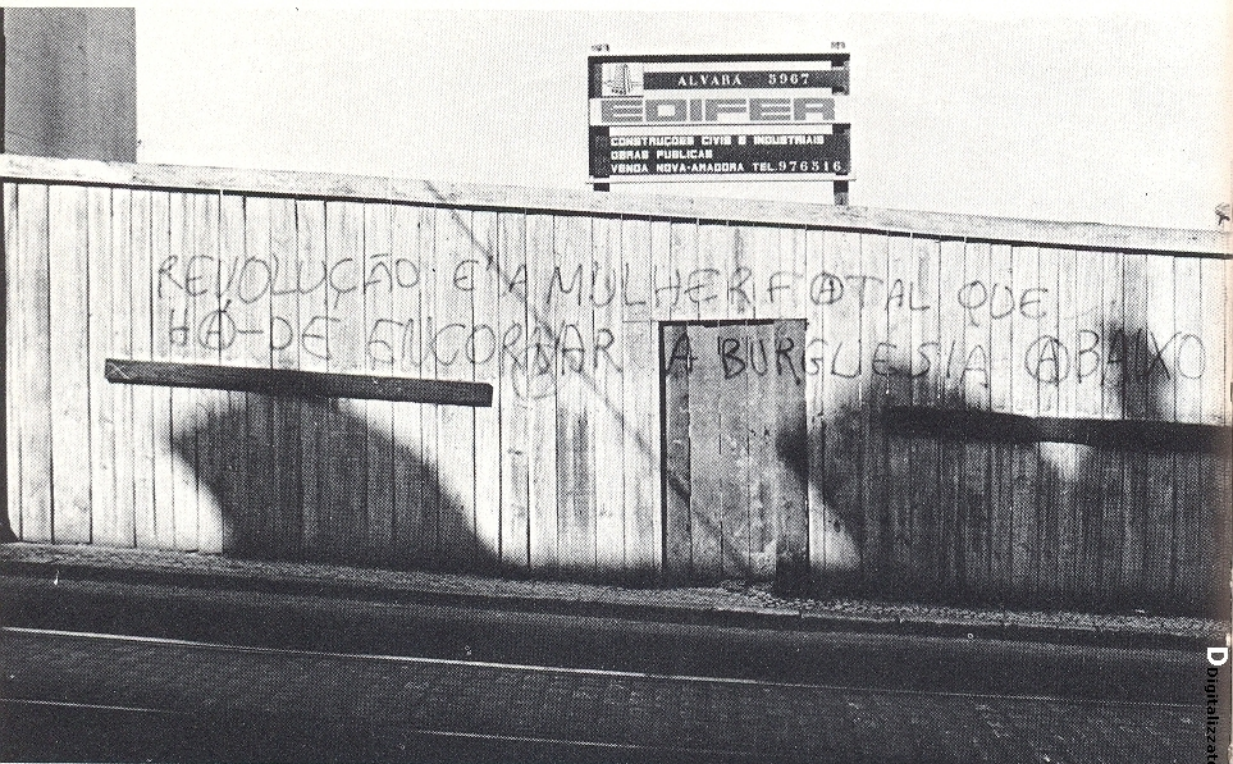 ALVARÁ 5967
EDIFER
CONSTRUÇÕES CIVIS E INDUSTRIAIS
OBRAS PUBLICAS
VENDA NOVA-AMADORA TEL.976516
REVOLUÇÃO E' A MULHER FATAL QUE
HÁ-DE ENCORNAR A BURGUESIA ABAIXO
Digitalizzat